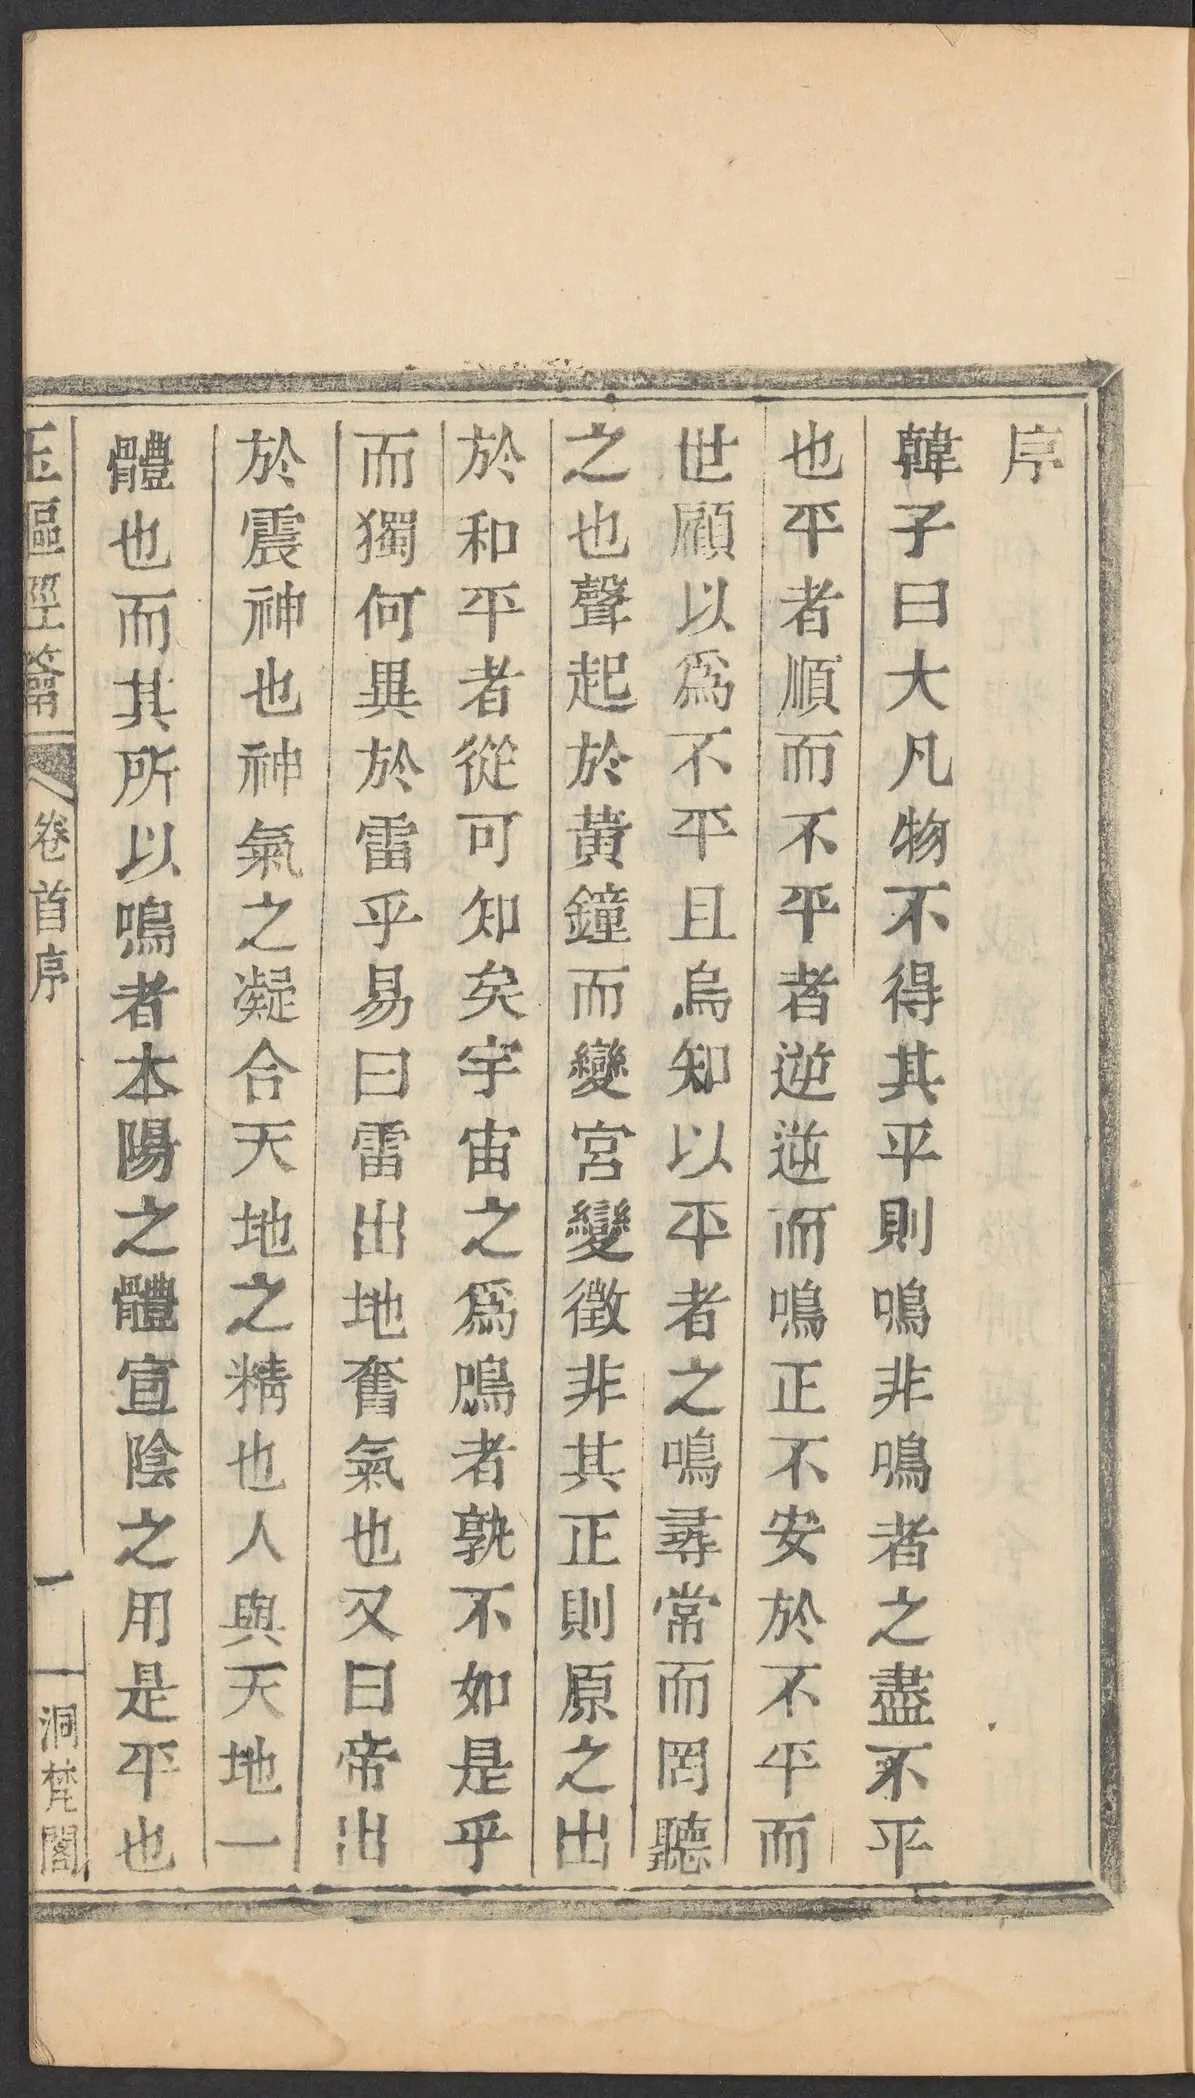 序
韓子曰大凡物不得其平則鳴非鳴者之盡不平
也平者順而不平者逆逆而鳴正不安於不平而
世顧以爲不平且烏知以平者之鳴尋常而罔聽
之也聲起於黃鐘而變宮變徵非其正則原之出
於和平者從可知矣宇宙之爲鳴者孰不如是乎
而獨何異於雷乎易曰雷出地奮氣也又曰帝出
於震神也神氣之凝合天地之精也人與天地一
體也而其所以鳴者本陽之體宣陰之用是平也
玉樞經籥
卷首序
一
洞梵閣